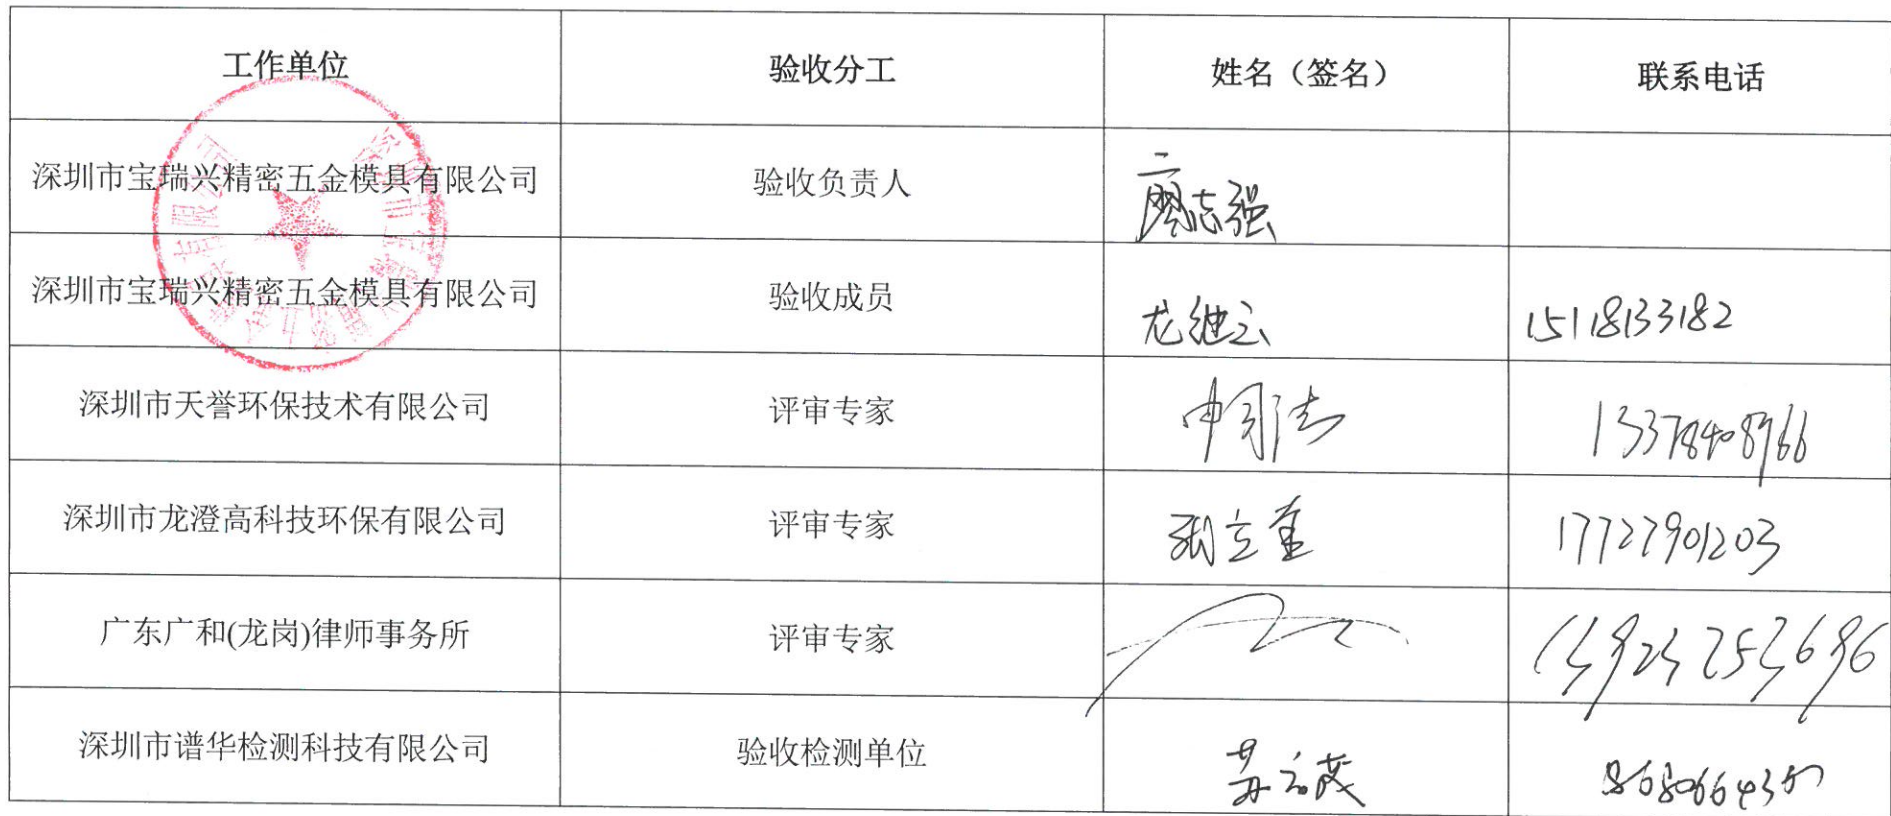 工作单位 验收分工 姓名（签名） 联系电话
深圳市宝瑞兴精密五金模具有限公司 验收负责人 廖志强
深圳市宝瑞兴精密五金模具有限公司 验收成员 15118133182
深圳市天誉环保技术有限公司 评审专家
深圳市龙澄高科技环保有限公司 评审专家 17727901203
广东广和(龙岗)律师事务所 评审专家
深圳市谱华检测科技有限公司 验收检测单位